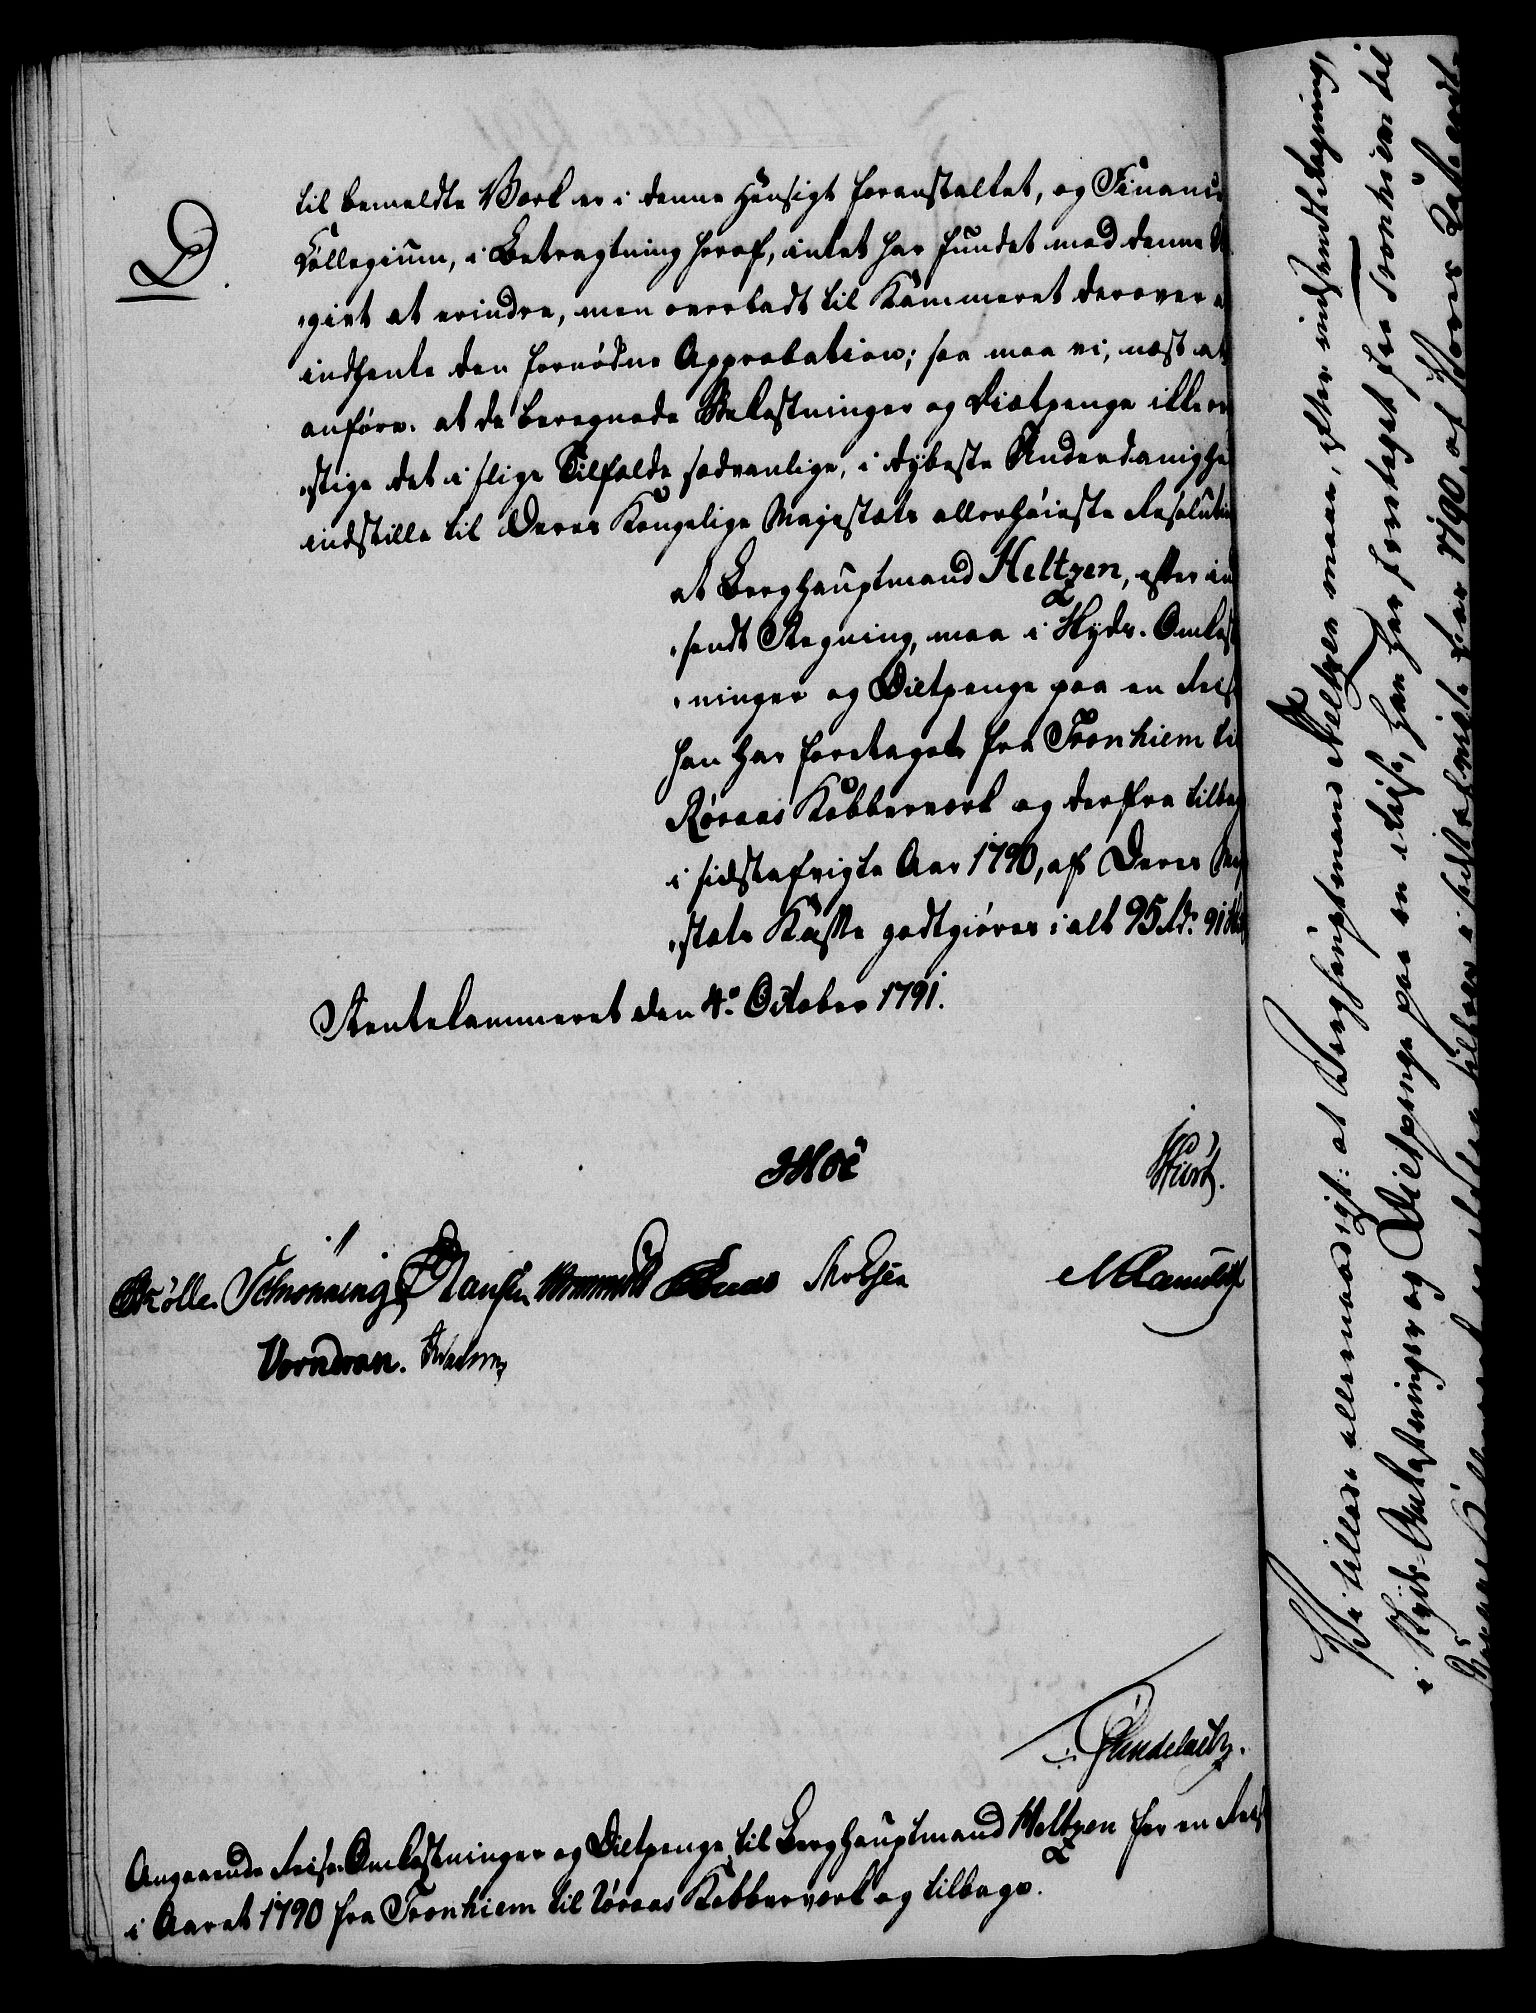 D.
til bemeldte Værk er i denne Hensigt foranstaltet, og Finance
Collegium, i Betragtning heraf, intet har fundet med denne
-givt at erindre, men overladt til Kammeret derover
indhente den fornødne Approbation; saa maa vi, næst at
anføre. at de beregnede Bekostninger og Diætpenge ikke
-stige det i slige Tilfælde sædvanlige, i dybeste Underdanighe
indstille til Deres Kongelige Majestæts allerhøieste Resolution
at Berghauptmand Heltzen, efter ind
-sendt Regning, maa i Kyds- Omkost
-ninger og Dietpenge paa en Reise
han har foretaget fra Tronhiem til
Røraas Kobberværk og derfra tilbage
i sidstafvigte Aar 1790, af Deres Maj
-stæts Kasse godtgiøres i alt 95 rd. 91
Rentekammeret den 4de October 1791.
JHoë
Müller Schmonning Hansen Rosen
Vorndran.
Angaaende Reise-Omkostninger og Dietpenge til Berghauptmand Heltzen for en Reise
i Aaret 1790 fra Tronhiem til Røraas Kobberværk og tilbage.
Vi tillade allernaadigst: at Berghauptmand Heltzen maa, efter indsendt Regning,
i Kyds-Omkostninger og Dietpenge paa en Reise, han har foretaget fra Tronhiem til
Røraas Kobberværk og derfra tilbage i sidstafvigte Aar 1790, af Vores Kasse godt-